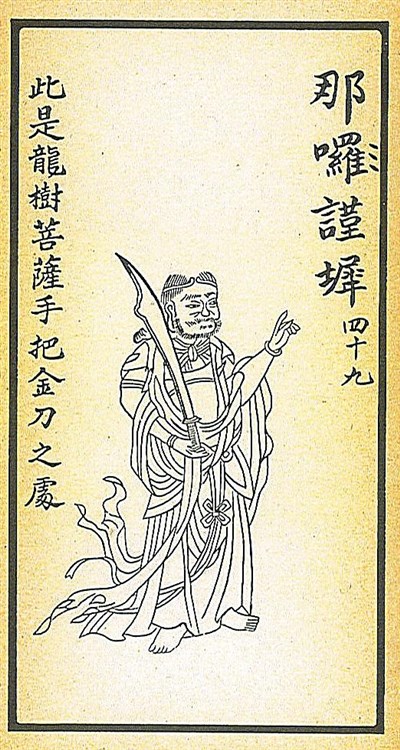 那囉謹墀 四十九
此是龍樹菩薩手把金刀之處